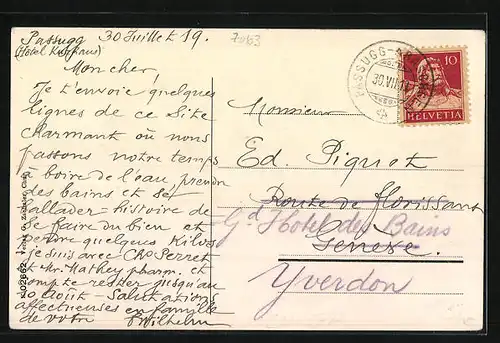 Passugg 30 Juillet 19.
(Hôtel Kurhaus)
Mon cher,
Je t'envoie quelques
lignes de ce site
charmant où nous
passons notre temps
à boire de l'eau, prendre
des bains et se
ballader - histoire de
se faire du bien et
perdre quelques kilos
je suis avec Chs Perret
et Mr. Mathey pharm. et
compte rester jusqu'au
10 août - Salutations
affectueuses en famille
de votre Wilhelm
7063
Monsieur
Ed. Piguet
Route de Florissant
Gd Hotel des Bains
Genève
Yverdon
PASSUGG
30.VII.19
10
HELVETIA